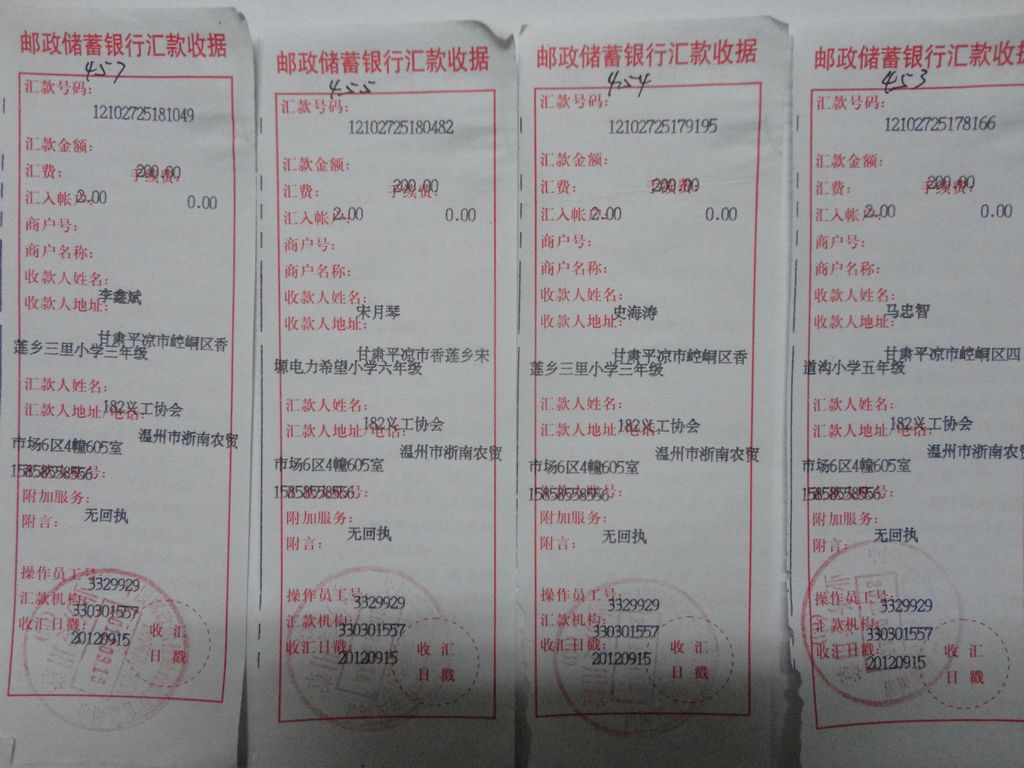 邮政储蓄银行汇款收据
457
汇款号码:
12102725181049
汇款金额:
200.00
汇费: 手续费:
2.00 0.00
汇入帐户:
商户号:
商户名称:
收款人姓名:
李鑫斌
收款人地址:
甘肃平凉市崆峒区香
莲乡三里小学三年级
汇款人姓名:
182义工协会
汇款人地址/电话:
温州市浙南农贸
市场6区4幢605室
15858558556
附加服务:
无回执
附言:
操作员工号:
3329929
汇款机构:
330301557
收汇日戳:
20120915
收汇
日戳
邮政储蓄银行汇款收据
455
汇款号码:
12102725180482
汇款金额:
200.00
汇费: 手续费:
2.00 0.00
汇入帐户:
商户号:
商户名称:
收款人姓名:
宋月琴
收款人地址:
甘肃平凉市香莲乡宋
塬电力希望小学六年级
汇款人姓名:
182义工协会
汇款人地址/电话:
温州市浙南农贸
市场6区4幢605室
15858558556
附加服务:
无回执
附言:
操作员工号:
3329929
汇款机构:
330301557
收汇日戳:
20120915
收汇
日戳
邮政储蓄银行汇款收据
454
汇款号码:
12102725179195
汇款金额:
200.00
汇费: 手续费:
2.00 0.00
汇入帐户:
商户号:
商户名称:
收款人姓名:
史海涛
收款人地址:
甘肃平凉市崆峒区香
莲乡三里小学三年级
汇款人姓名:
182义工协会
汇款人地址/电话:
温州市浙南农贸
市场6区4幢605室
15858558556
附加服务:
无回执
附言:
操作员工号:
3329929
汇款机构:
330301557
收汇日戳:
20120915
收汇
日戳
邮政储蓄银行汇款收据
453
汇款号码:
12102725178166
汇款金额:
200.00
汇费: 手续费:
2.00 0.00
汇入帐户:
商户号:
商户名称:
收款人姓名:
马忠智
收款人地址:
甘肃平凉市崆峒区四
道沟小学五年级
汇款人姓名:
182义工协会
汇款人地址/电话:
温州市浙南农贸
市场6区4幢605室
15858558556
附加服务:
无回执
附言:
操作员工号:
3329929
汇款机构:
330301557
收汇日戳:
20120915
收汇
日戳